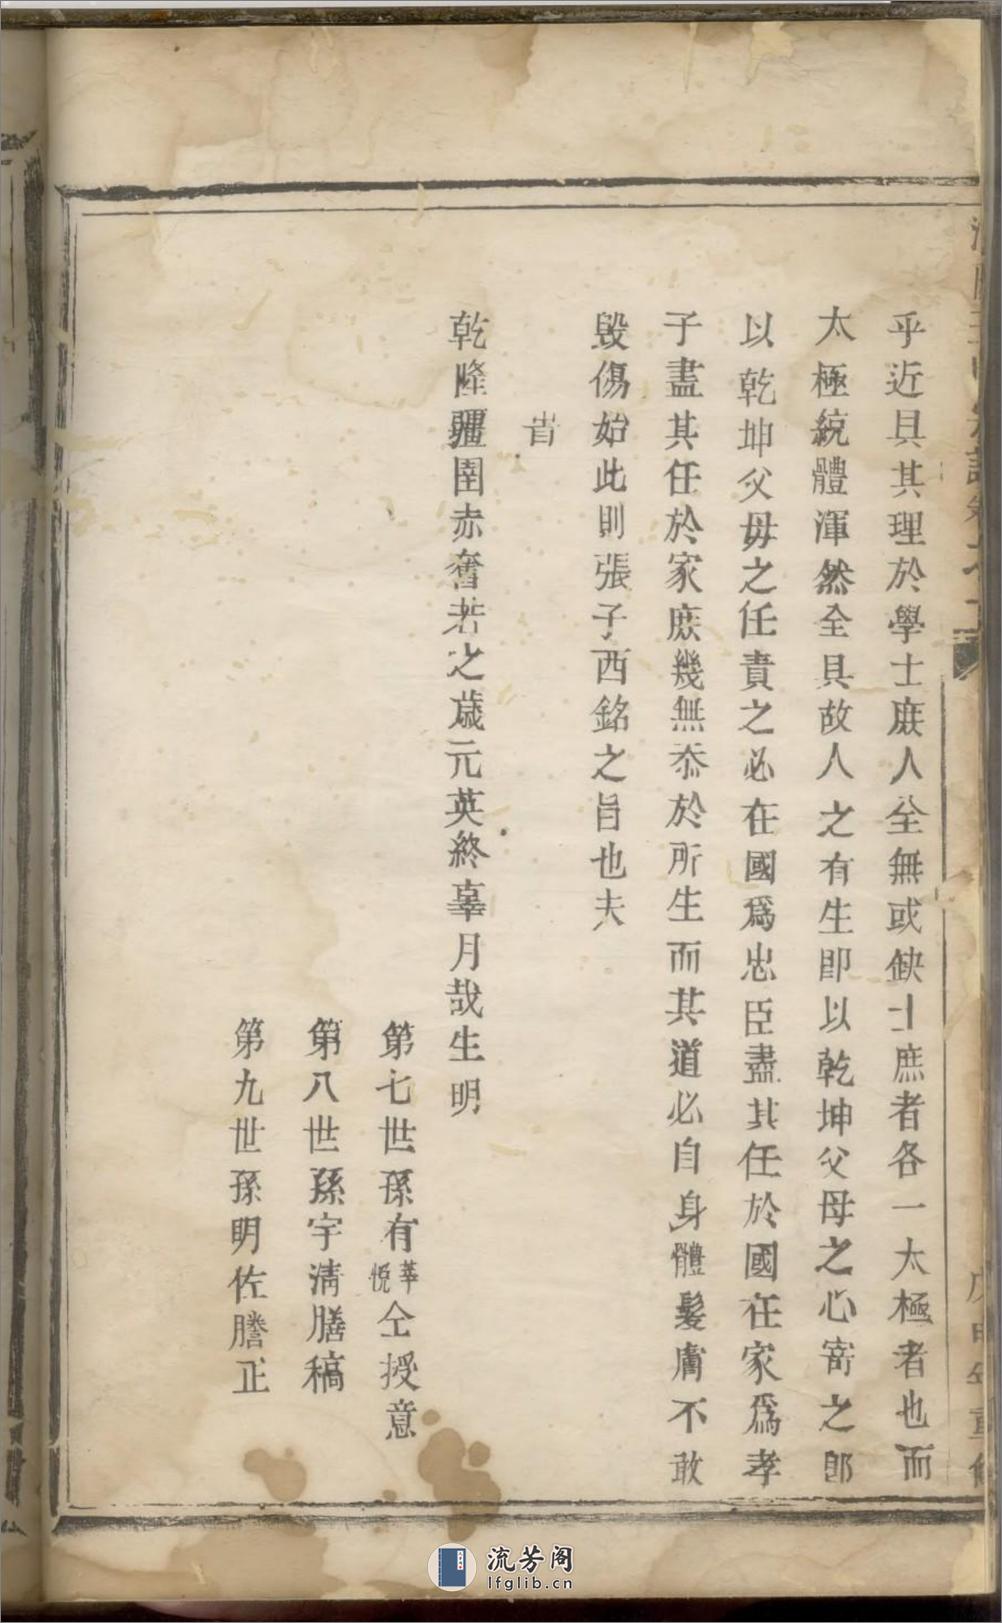 乎近具其理於學士庶人全無或缺士庶者各一太極者也而
太極統體渾然全具故人之有生卽以乾坤父母之心寄之卽
以乾坤父母之任責之必在國爲忠臣盡其任於國在家爲孝
子盡其任於家庶幾無忝於所生而其道必自身體髮膚不敢
毀傷始此則張子西銘之旨也夫
旹
乾隆疆圉赤奮若之歲元英終辜月哉生明
第七世孫有華悅仝授意
第八世孫宇清膳稿
第九世孫明佐謄正
流芳阁
lfglib.cn